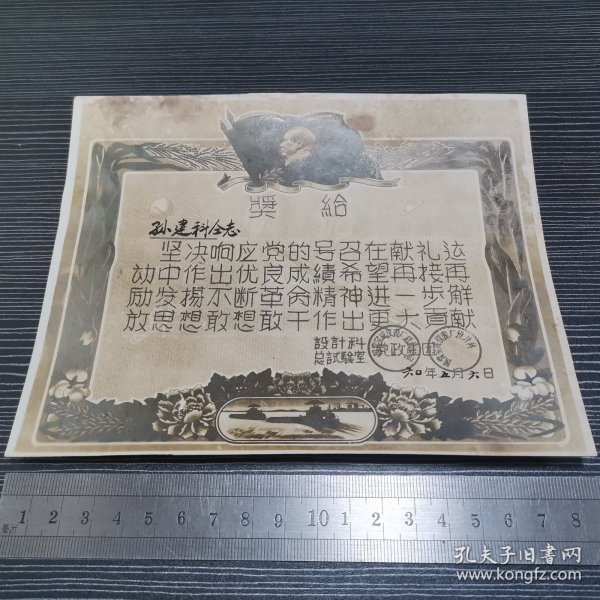 奬給
孙建科仝志
坚决响应党的号召在献礼运
动中作出优良成績希望再接再
励发揚不断革命精神进一步解
放思想敢想敢干作出更大貢献
設計科
总試驗室
党政工团
六〇年五月六日
毫米 1 2 1 2 3 4 5 6 7 8 9 10 1 2 3 4 5 6 7 8
孔夫子旧書网
www.kongfz.com